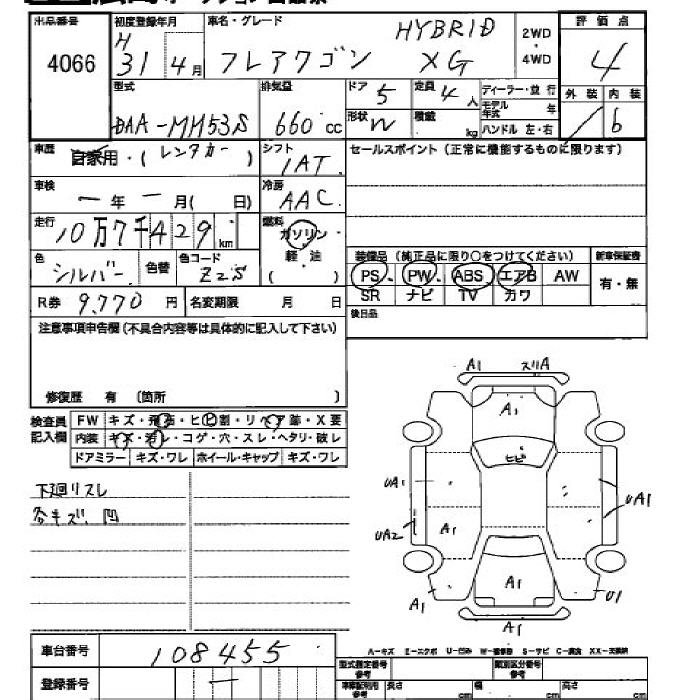 出品番号 初度登録年月 車名・グレード 評価点
4066 H 31 4月 フレアワゴン HYBRID XG 2WD・4WD 4
型式 排気量 ドア 5 定員 4人 ディーラー・並行 外装 内装
DAA-MH53S 660cc 形状 W 積載 kg モデル年式 年 b
ハンドル 左・右
車歴 自家用・(レンタカー) シフト 1AT セールスポイント (正常に機能するものに限ります)
車検 ー年ー月( 日) 冷房 AAC
走行 10万7千429km 燃料 ガソリン 軽油 ( )
装備品 (純正品に限り○をつけてください) 新車保証書
色 シルバー 色替 色コード Z2S PS PW ABS エアB AW 有・無
R券 9,770円 名変期限 月 日 SR ナビ TV カワ
後日品
注意事項申告欄(不具合内容等は具体的に記入して下さい)
修復歴 有 〔箇所 〕
検査員記入欄 FW キズ・飛石・ヒビ割・リペア跡・X要
内装 キズ・汚レ・コゲ・穴・スレ・ヘタリ・破レ
ドアミラー キズ・ワレ ホイール・キャップ キズ・ワレ
下廻リスレ
各キズ、凹
A1 スリA
A1
ヒビ
UA1 UA1
UA2 A1
A1
A1 U1
A1
A-キズ E-エクボ U-凹み W-補修跡 S-サビ C-腐食 XX-交換済
車台番号 108455
登録番号 ー
型式指定番号 参考 類別区分番号 参考
車庫証明用 参考 長さ cm 幅 cm 高さ cm